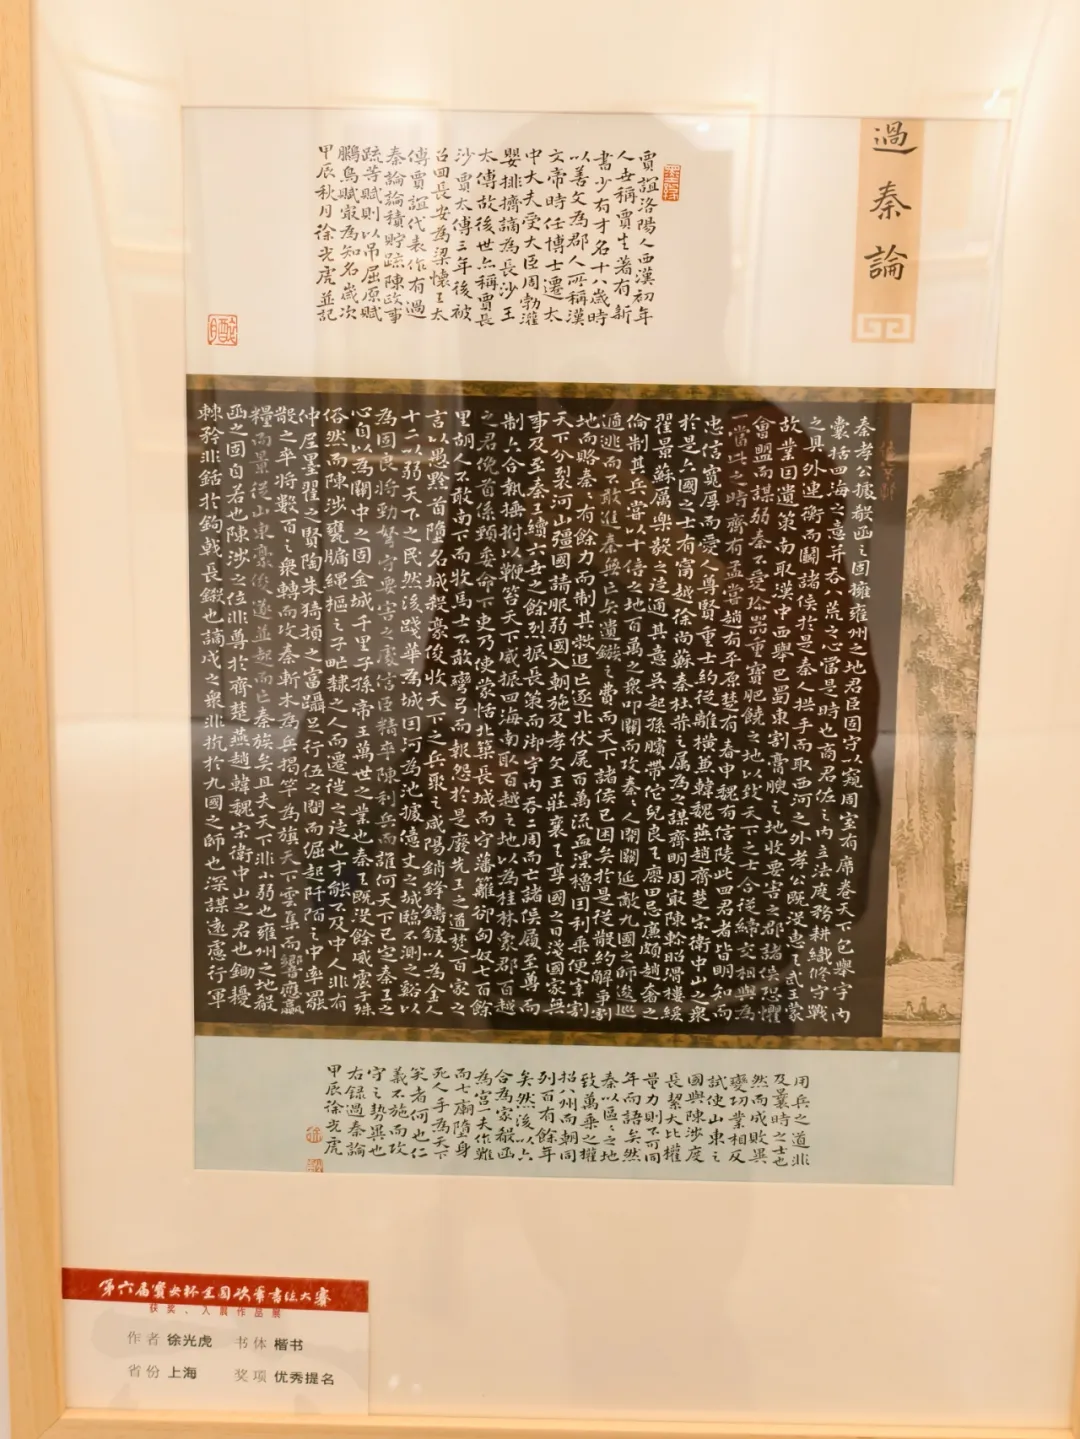 過秦論
賈誼洛陽人西漢初年
人世稱賈生著有新
書少有才名十八歲時
以善文為郡人所稱漢
文帝時任博士遷太
中大夫受大臣周勃灌
嬰排擠謫為長沙王
太傅故後世亦稱賈長
沙賈太傅三年後被
召回長安為梁懷王太
傅賈誼代表作有過
秦論論積貯疏陳政事
疏等賦則以吊屈原賦
鵩鳥賦最為知名歲次
甲辰秋月徐光虎並記
秦孝公據殽函之固擁雍州之地君臣固守以窺周室有席卷天下包舉宇内
囊括四海之意并吞八荒之心當是時也商君佐之内立法度務耕織修守戰
之具外連衡而鬭諸侯於是秦人拱手而取西河之外孝公既没惠王武王蒙
故業因遺策南取漢中西舉巴蜀東割膏腴之地收要害之郡諸侯恐懼
會盟而謀弱秦不愛珍器重寶肥饒之地以致天下之士合從締交相與為
一當此之時齊有孟嘗趙有平原楚有春申魏有信陵此四君者皆明知而
忠信寬厚而愛人尊賢重士約從離横兼韓魏燕趙齊楚宋衛中山之衆
於是六國之士有甯越徐尚蘇秦杜赫之屬為之謀齊明周最陳軫昭滑樓緩
翟景蘇厲樂毅之徒通其意吳起孫臏帶佗兒良王廖田忌廉頗趙奢之
倫制其兵嘗以十倍之地百萬之衆叩關而攻秦〻人開關延敵九國之師逡巡
遁逃而不敢進秦無亡矢遺鏃之費而天下諸侯已困矣於是從散約解爭割
地而賂秦〻有餘力而制其敝追亡逐北伏屍百萬流血漂櫓因利乘便宰割
天下分裂河山彊國請服弱國入朝施及孝文王莊襄王享國之日淺國家無
事及至秦王續六世之餘烈振長策而御宇内吞二周而亡諸侯履至尊而
制六合執棰拊以鞭笞天下威振四海南取百越之地以為桂林象郡百越
之君俛首係頸委命下吏乃使蒙恬北築長城而守藩籬卻匈奴七百餘
里胡人不敢南下而牧馬士不敢彎弓而報怨於是廢先王之道焚百家之
言以愚黔首墮名城殺豪俊收天下之兵聚之咸陽銷鋒鑄鐻以為金人
十二以弱天下之民然後踐華為城因河為池據億丈之城臨不測之谿以
為固良將勁弩守要害之處信臣精卒陳利兵而誰何天下已定秦王之
心自以為關中之固金城千里子孫帝王萬世之業也秦王既没餘威震于殊
俗然而陳涉甕牖繩樞之子甿隸之人而遷徙之徒也才能不及中人非有
仲尼墨翟之賢陶朱猗頓之富躡足行伍之間而倔起阡陌之中率罷
散之卒將數百之衆轉而攻秦斬木為兵揭竿為旗天下雲集而響應贏
糧而景從山東豪俊遂並起而亡秦族矣且夫天下非小弱也雍州之地殽
函之固自若也陳涉之位非尊於齊楚燕趙韓魏宋衛中山之君也鋤櫌
棘矜非銛於鉤戟長鎩也謫戍之衆非抗於九國之師也深謀遠慮行軍
用兵之道非
及曩時之士也
然而成敗異
變功業相反
試使山東之
國與陳涉度
長絜大比權
量力則不可同
年而語矣然
秦以區〻之地
致萬乘之權
招八州而朝同
列百有餘年
矣然後以六
合為家殽函
為宮一夫作難
而七廟墮身
死人手為天下
笑者何也仁
義不施而攻
守之勢異也
右錄過秦論
甲辰徐光虎
第六届宝克杯全国硬笔书法大赛
获奖、入展作品展
作者 徐光虎 书体 楷书
省份 上海 奖项 优秀提名